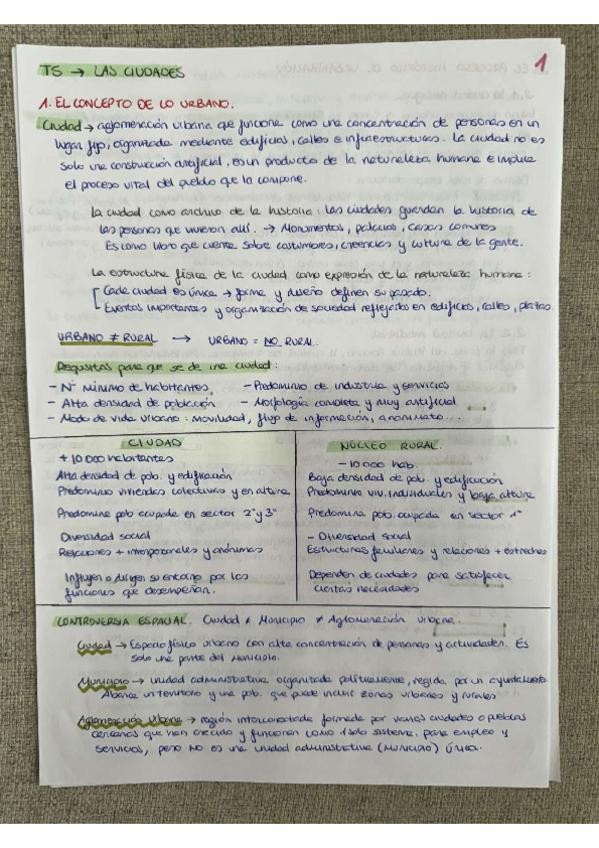 1
T5 → LAS CIUDADES
1. EL CONCEPTO DE LO URBANO.
Ciudad → aglomeración urbana que funciona como una concentración de personas en un
lugar fijo, organizada mediante edificios, calles e infraestructuras. La ciudad no es
solo una construcción artificial, es un producto de la naturaleza humana e implica
el proceso vital del pueblo que la compone.
La ciudad como archivo de la historia: las ciudades guardan la historia de
las personas que vivieron allí. → Monumentos, palacios, casas comunes
Es como libro que cuenta sobre costumbres, creencias y cultura de la gente.
La estructura física de la ciudad como expresión de la naturaleza humana:
Cada ciudad es única → forma y diseño definen su pasado.
Eventos importantes y organización de sociedad reflejados en edificios, calles, plazas
URBANO ≠ RURAL → URBANO = NO RURAL.
Requisitos para que se de una ciudad:
- Nº mínimo de habitantes. - Predominio de industria y servicios
- Alta densidad de población - Morfología completa y muy artificial
- Modo de vida urbano: movilidad, flujo de información, anonimato...
CIUDAD
+ 10 000 habitantes
Alta densidad de pob. y edificación
Predominio viviendas colectivas y en altura.
Predomina pob ocupada en sector 2º y 3º
Diversidad social
Relaciones + interpersonales y anónimas
Influyen o dirigen su entorno por las
funciones que desempeñan.
NÚCLEO RURAL.
- 10 000 hab.
Baja densidad de pob. y edificación
Predominio viv. individuales y baja altura
Predomina pob. ocupada en sector 1º
- Diversidad social
Estructuras familiares y relaciones + estrechas
Dependen de ciudades para satisfacer
ciertas necesidades
CONTROVERSIA ESPACIAL. Ciudad ≠ Municipio ≠ Aglomeración urbana.
Ciudad → Espacio físico urbano con alta concentración de personas y actividades. Es
solo una parte del municipio.
Municipio → unidad administrativa organizada políticamente, regida por un ayuntamiento
Abarca un territorio y una pob. que puede incluir zonas urbanas y rurales
Aglomeración urbana → región interconectada formada por varias ciudades o pueblos
cercanos que han crecido y funcionan como 1 solo sistema para empleo y
servicios, pero NO es una unidad administrativa (MUNICIPIO) única.